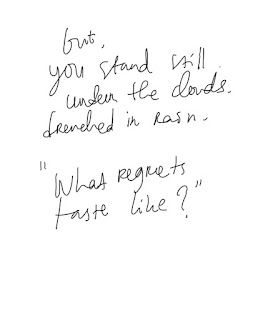 but,
you stand still.
under the clouds.
drenched in rain.
"What regrets
taste like?"